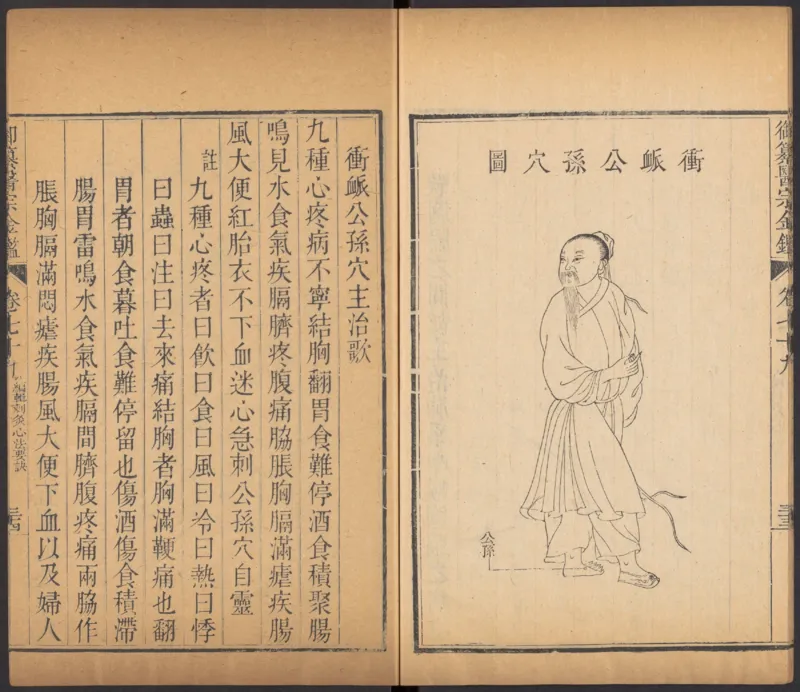 御纂醫宗金鑑
卷七十九
三十三
衝衇公孫穴圖
公孫
衝衇公孫穴主治歌
九種心疼病不寧結胸翻胃食難停酒食積聚腸
鳴見水食氣疾膈臍疼腹痛脇脹胸膈滿瘧疾腸
風大便紅胎衣不下血迷心急刺公孫穴自靈
註九種心疼者曰飲曰食曰風曰冷曰熱曰悸
曰蟲曰注曰去來痛結胸者胸滿鞕痛也翻
胃者朝食暮吐食難停留也傷酒傷食積滯
腸胃雷鳴水食氣疾膈間臍腹疼痛兩脇作
脹胸膈滿悶瘧疾腸風大便下血以及婦人
御纂醫宗金鑑
卷七十九
編輯刺灸心法要訣
三十四